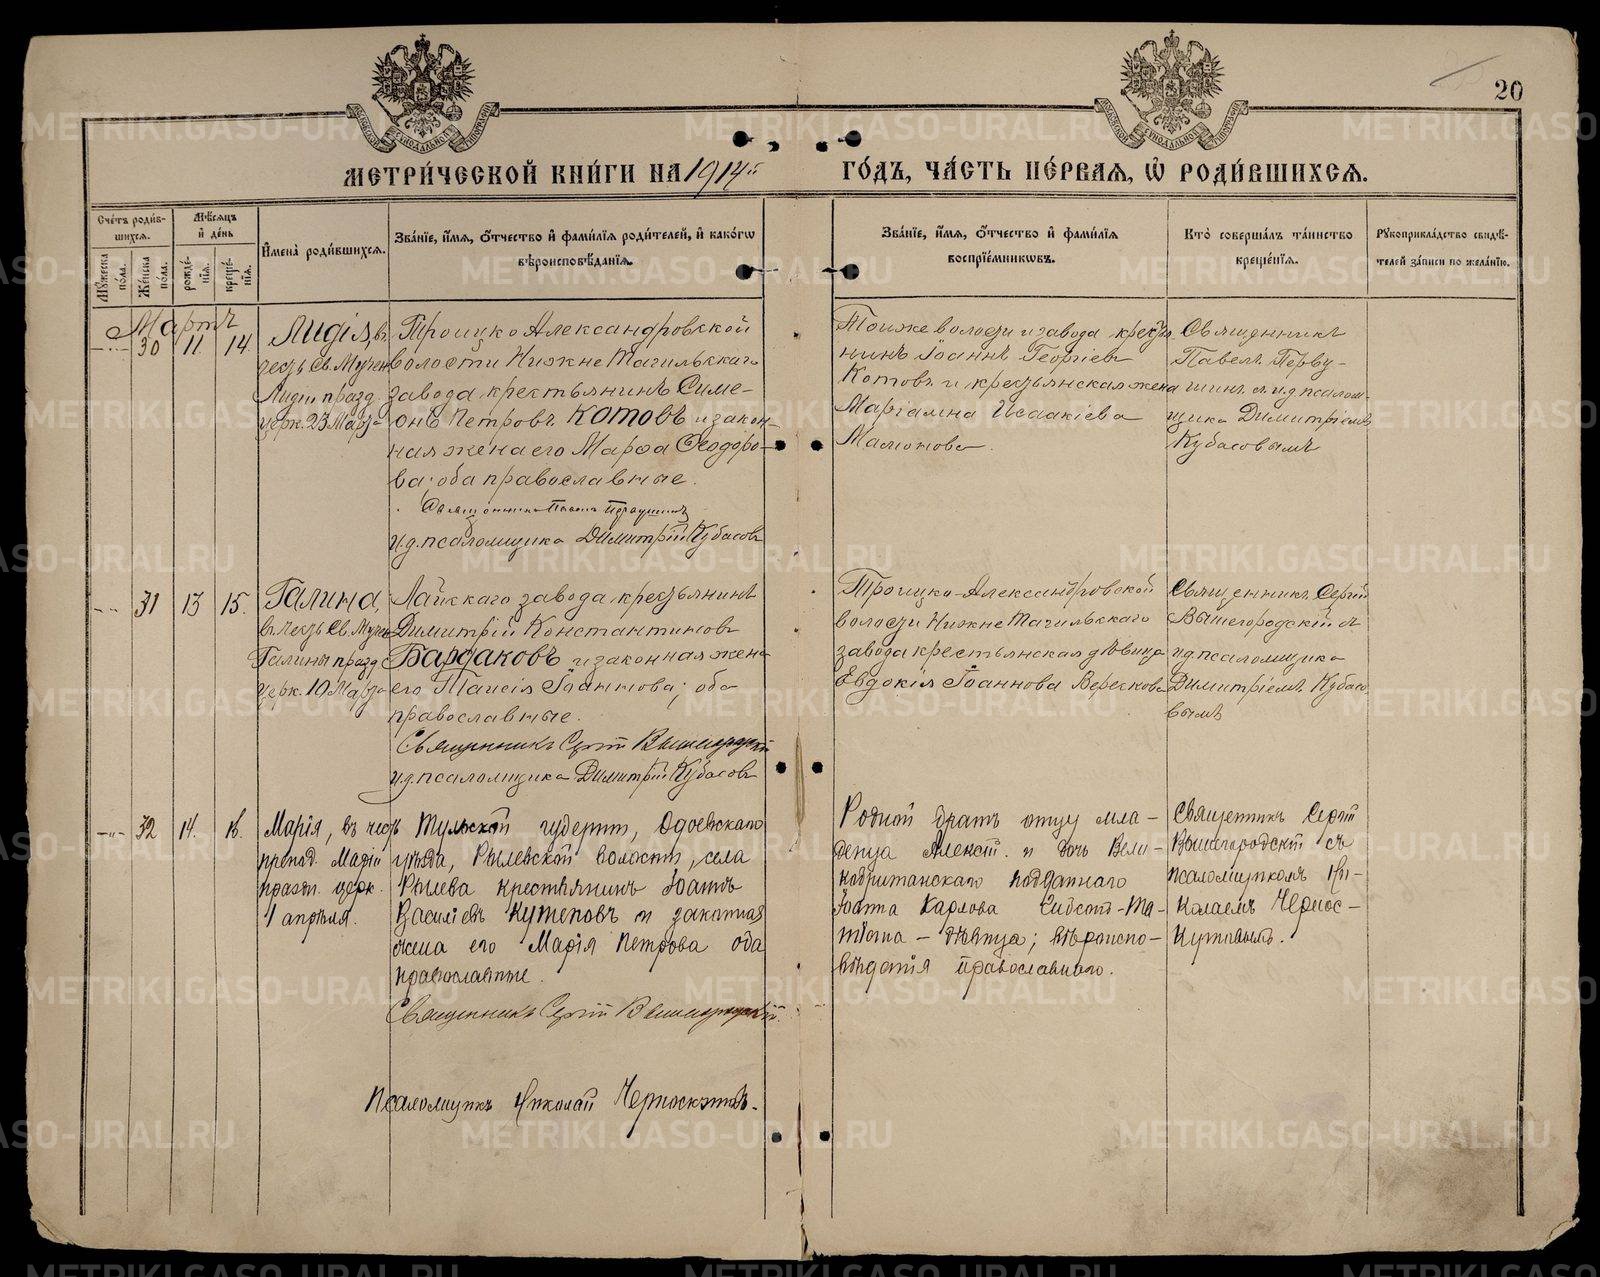 20
МОСКОВСКОЙ СѴНОДАЛЬНОЙ ТѴПОГРАФІИ
МОСКОВСКОЙ СѴНОДАЛЬНОЙ ТѴПОГРАФІИ
МЕТРИ́ЧЕСКОЙ КНИ́ГИ НА 1914й ГО́ДЪ, ЧА́СТЬ ПЕ́РВАѦ, Ѡ҆ РОДИ́ВШИХСѦ.
Сче́тъ роди́в-
шихсѧ.
Мꙋ́жеска по́ла.
Же́нска по́ла.
Мѣ́сѧцъ
и҆ де́нь
рожде́-
нїѧ.
креще́-
нїѧ.
И҆мена̀ роди́вшихсѧ.
Зва́нїе, и҆́мѧ, ѻ҆́тчество и҆ фами́лїѧ роди́телей, и҆ како́гѡ
вѣроисповѣ́данїѧ.
Зва́нїе, и҆́мѧ, ѻ҆́тчество и҆ фами́лїѧ
воспрїе́мниковъ.
Кто̀ соверша́лъ та́инство
креще́нїѧ.
Рꙋкоприкла́дство свидѣ́-
телей за́писи по жела́нїю.
Мартъ
-„- 30 11 14
Лидія, въ
честь Св. Мучен.
Лидіи празд.
церк. 23 Марта
Троицко Александровской
волости Нижне Тагильскаго
завода, крестьянинъ Симе-
онъ Петровъ Котовъ и закон-
ная жена его Марѳа Ѳеодоро-
ва; оба православные.
Священникъ Павелъ Первушинъ
и.д. псаломщика Димитрій Кубасовъ
Той же волости и завода крестья-
нинъ Іоаннъ Георгіевъ
Котовъ и крестьянская жена
Маріамна Исаакіева
Мамонова.
Священникъ
Павелъ Перву-
шинъ съ и.д. псалом-
щика Димитріемъ
Кубасовымъ
-„- 31 13 15.
Галина,
въ честь Св. Мучен.
Галины празд.
церк. 10 Марта
Лайскаго завода, крестьянинъ
Димитрій Константиновъ
Бардаковъ и законная жена
его Таисія Іоаннова; оба
православные.
Священникъ Сергій Вышегородскій
и.д. псаломщика Димитрій Кубасовъ
Троицко-Александровской
волости Нижне Тагильскаго
завода крестьянская дѣвица
Евдокія Іоаннова Верескова
Священникъ Сергій
Вышегородскій съ
и.д. псаломщика
Димитріемъ Кубасо-
вымъ
-„- 32 14. 16.
Марія, въ честь
препод. Маріи
праздн. церк.
1 апрѣля.
Тульской губерніи, Одоевскаго
уѣзда, Рылевской волости, села
Рылева крестьянинъ Іоаннъ
Василіевъ Кутеповъ и законная
жена его Марія Петрова оба
православные.
Священникъ Сергій Вышегородскій.
Псаломщикъ Николай Черноскутовъ.
Родной братъ отцу мла-
денца Алексій. и дочь Вели-
кобританскаго подданнаго
Іоанна Карлова Гибсонъ-Ма-
тіона - дѣвица; вѣроиспо-
вѣданія православнаго.
Священникъ Сергій
Вышегородскій съ
псаломщикомъ Ни-
колаемъ Чернос-
кутовымъ.